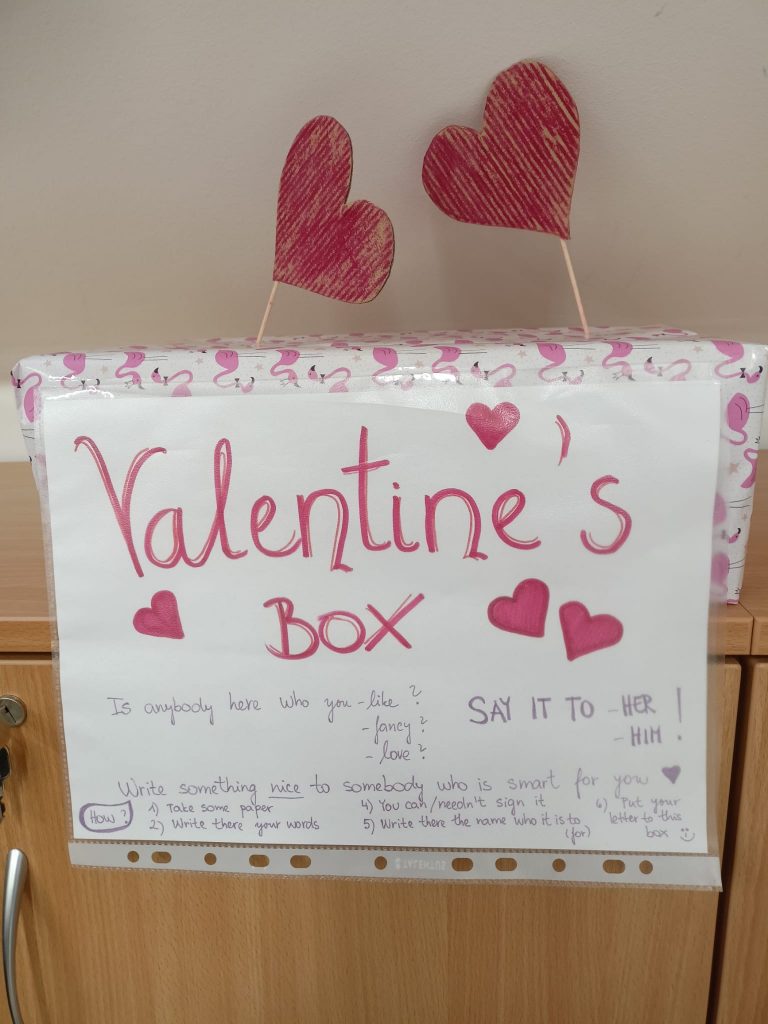 Valentine's
BOX
Is anybody here who you - like?
- fancy?
- love?
SAY IT TO - HER
- HIM !
Write something nice to somebody who is smart for you
How?
1) Take some paper
2) Write there your words
4) You can/needn't sign it
5) Write there the name who it is to
(for)
6) Put your
letter to this
box